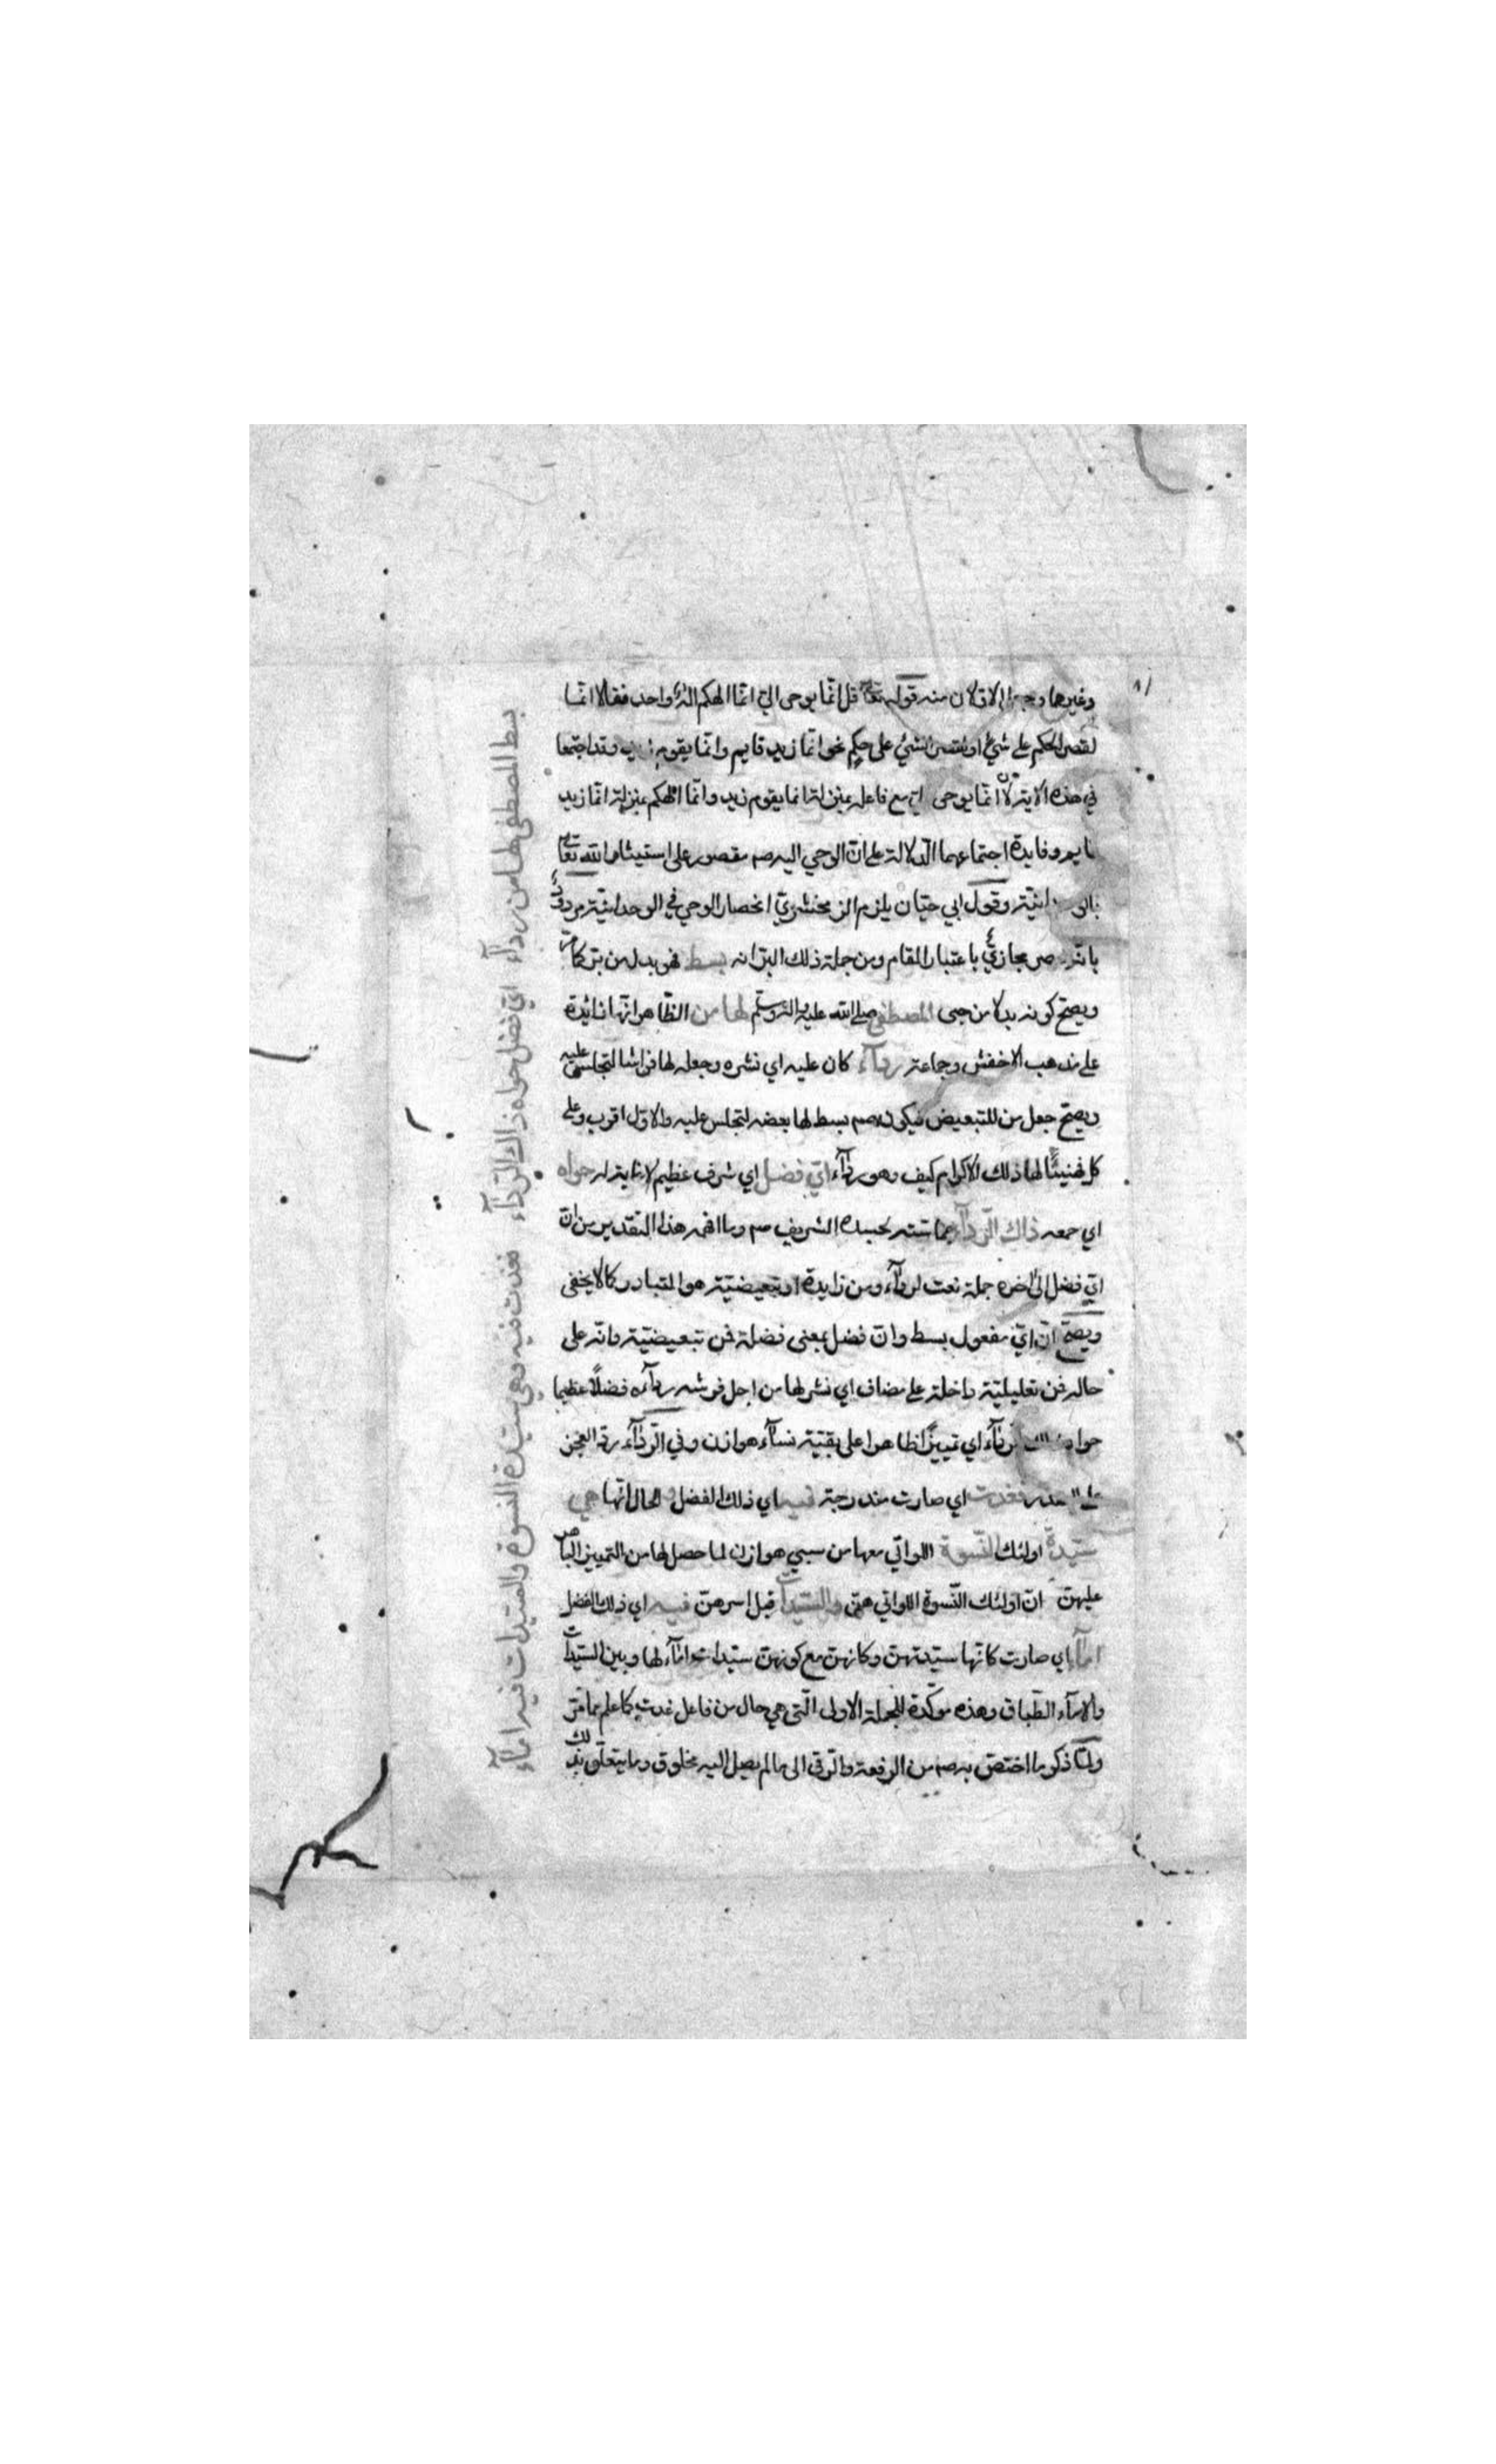 وغيرها وجها الاولان منه قوله تعا قل انّما يوحى اليّ انّما الهكم اله واحد فقالا انّما
لقصر الحكم على شيء او لقصر الشيء على حكم نحو انّما زيد قايم وانّما يقوم زيد وقد اجتمعا
في هذه الاية لان انّما يوحى اليّ مع فاعله بمنزلة انما يقوم زيد وانّما الهكم بمنزلة انّما زيد
قايم وفايدة اجتماعهما الدّلالة على انّ الوحي اليه صم مقصور على استيثار الله تعا
بالوحدانيّة وقول ابي حيّان يلزم الزمخشريّ انحصار الوحي في الوحدانيّة مردودٌ
بانّه حصر مجازيّ باعتبار المقام ومن جملة ذلك البرّ انه بسط فهو بدل من برّ كما مرّ
ويصحّ كونه بدلا من حبى المصطفى صلى الله عليه واله وسلّم لها من الظّاهر انّها زائدة
على مذهب الاخفش وجماعة ردآء كان عليه اي نشره وجعله لها فراشا لتجلس عليه
ويصحّ جعل من للتبعيض فيكون صم بسط لها بعضه لتجلس عليه والاوّل اقرب وعلى
كل فهنيئًا لها ذلك الاكرام كيف وهو ردآء ايّ فضل اي شرف عظيم لا غاية له حواه
اي جمعه ذاك الرّدآء بماسّته لجسده الشريف صم وما افهمه هذا التقدير من انّ
ايّ فضل الى اخره جملة نعت لردآء ومن زايدة او تبعيضيّة هو المتبادر كما لا يخفى
ويصحّ انّ ايّ مفعول بسط وانّ فضل بمعنى فضلة فمن تبعيضيّة وانّه على
حاله فمن تعليليّة داخلة على مضاف اي نشر لها من اجل فرشه ردآءه فضلًا عظيما
حواه ذاك الردآء اي تمييزًا ظاهرا على بقيّة نسآء هوازن وفي الرّدآء ردّ العجز
على الصدر فغدت اي صارت مندرجة فيه اي ذلك الفضل والحال انّها هي
سيّدة اولئك النّسوة اللواتي معها من سبي هوازن لما حصل لها من التمييز الباهر
عليهنّ انّ اولئك النّسوة اللواتي هنّ والسّيّدات قبل اسرهنّ فيه اي ذلك الفضل
امآء اي صارت كانّها سيّدتهنّ وكانهنّ مع كونهنّ سيّدات امآء لها وبين السّيّدات
والامآء الطّباق وهذه موكّدة للجملة الاولى الّتي هي حال من فاعل غدت كما علم بما مرّ
ولمّا ذكر ما اختصّ به صم من الرفعة والرّقى الى ما لم يصل اليه مخلوق وما يتعلّق بذلك
بسط المصطفى لها من ردآء اي فضل حواه ذاك الرّدآء
فغدت فيه وهي سيّدة النسوة والسّيّدات فيه امآء